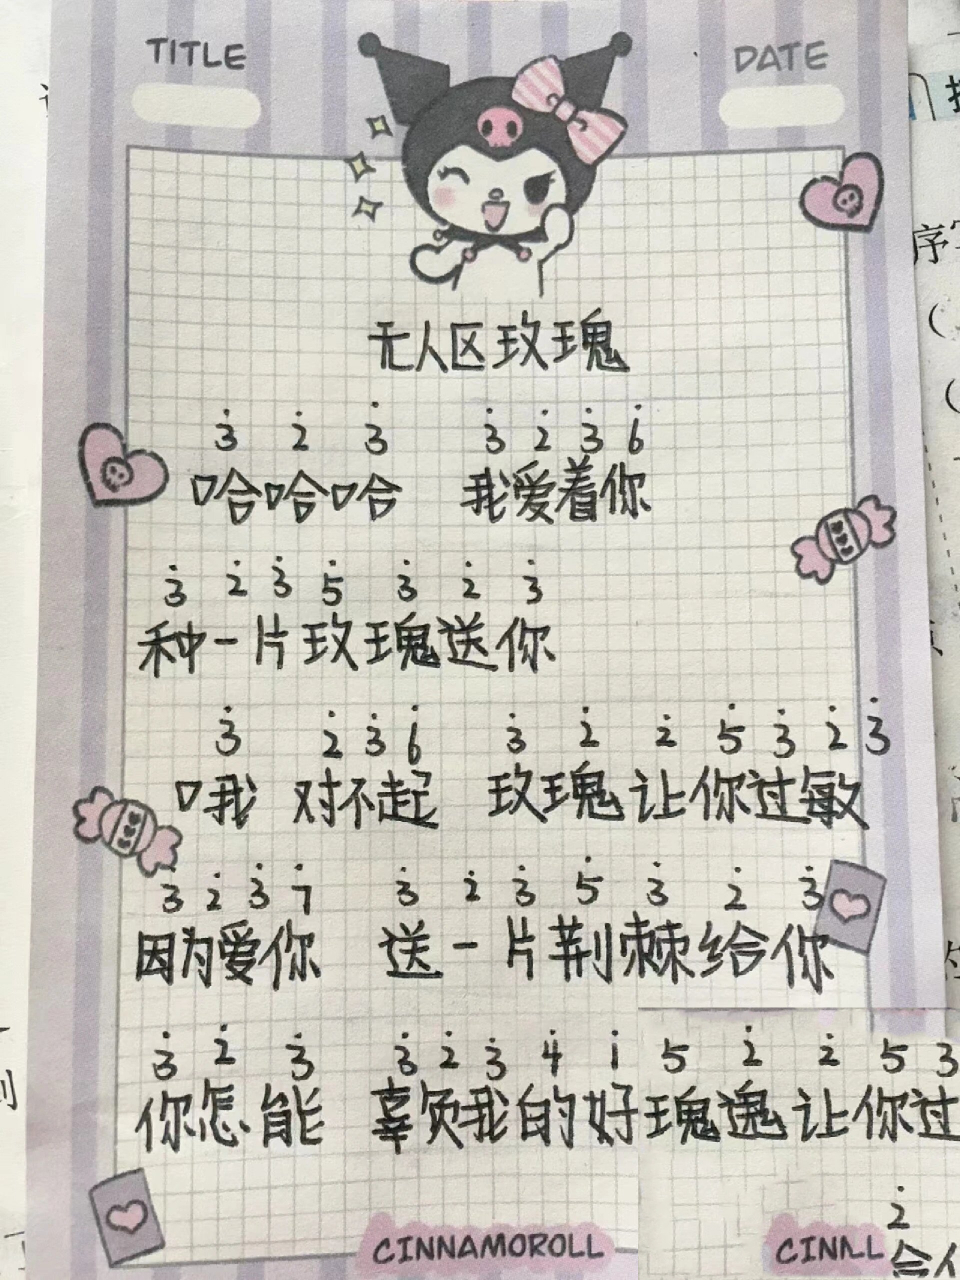 TITLE DATE
无人区玫瑰
3̇ 2̇ 3̇ 3̇ 2̇ 3̇ 6̇
哈哈哈 我爱着你
3̇ 2̇ 3̇ 5̇ 3̇ 2̇ 3̇
种一片玫瑰送你
3̇ 2̇ 3̇ 6̇ 3̇ 2̇ 2̇ 5̇ 3̇ 2̇ 3̇
哦 对不起 玫瑰让你过敏
3̇ 2̇ 3̇ 7̇ 3̇ 2̇ 3̇ 5̇ 3̇ 2̇ 3̇
因为爱你 送一片荆棘给你
3̇ 2̇ 3̇ 3̇ 2̇ 3̇ 4̇ 1̇ 5 2̇ 2̇ 5 3
你怎能 辜负我的好瑰 让你过
2̇
CINNAMOROLL